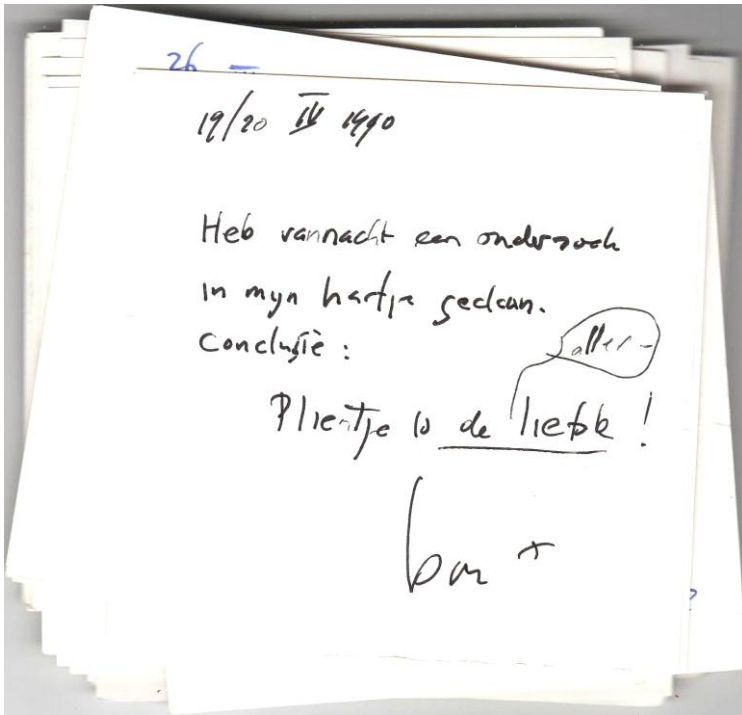 26 —
19/20 IV 1990
Heb vannacht een onderzoek
in mijn hartje gedaan.
Conclusie:
aller-
Plientje is de liefste!